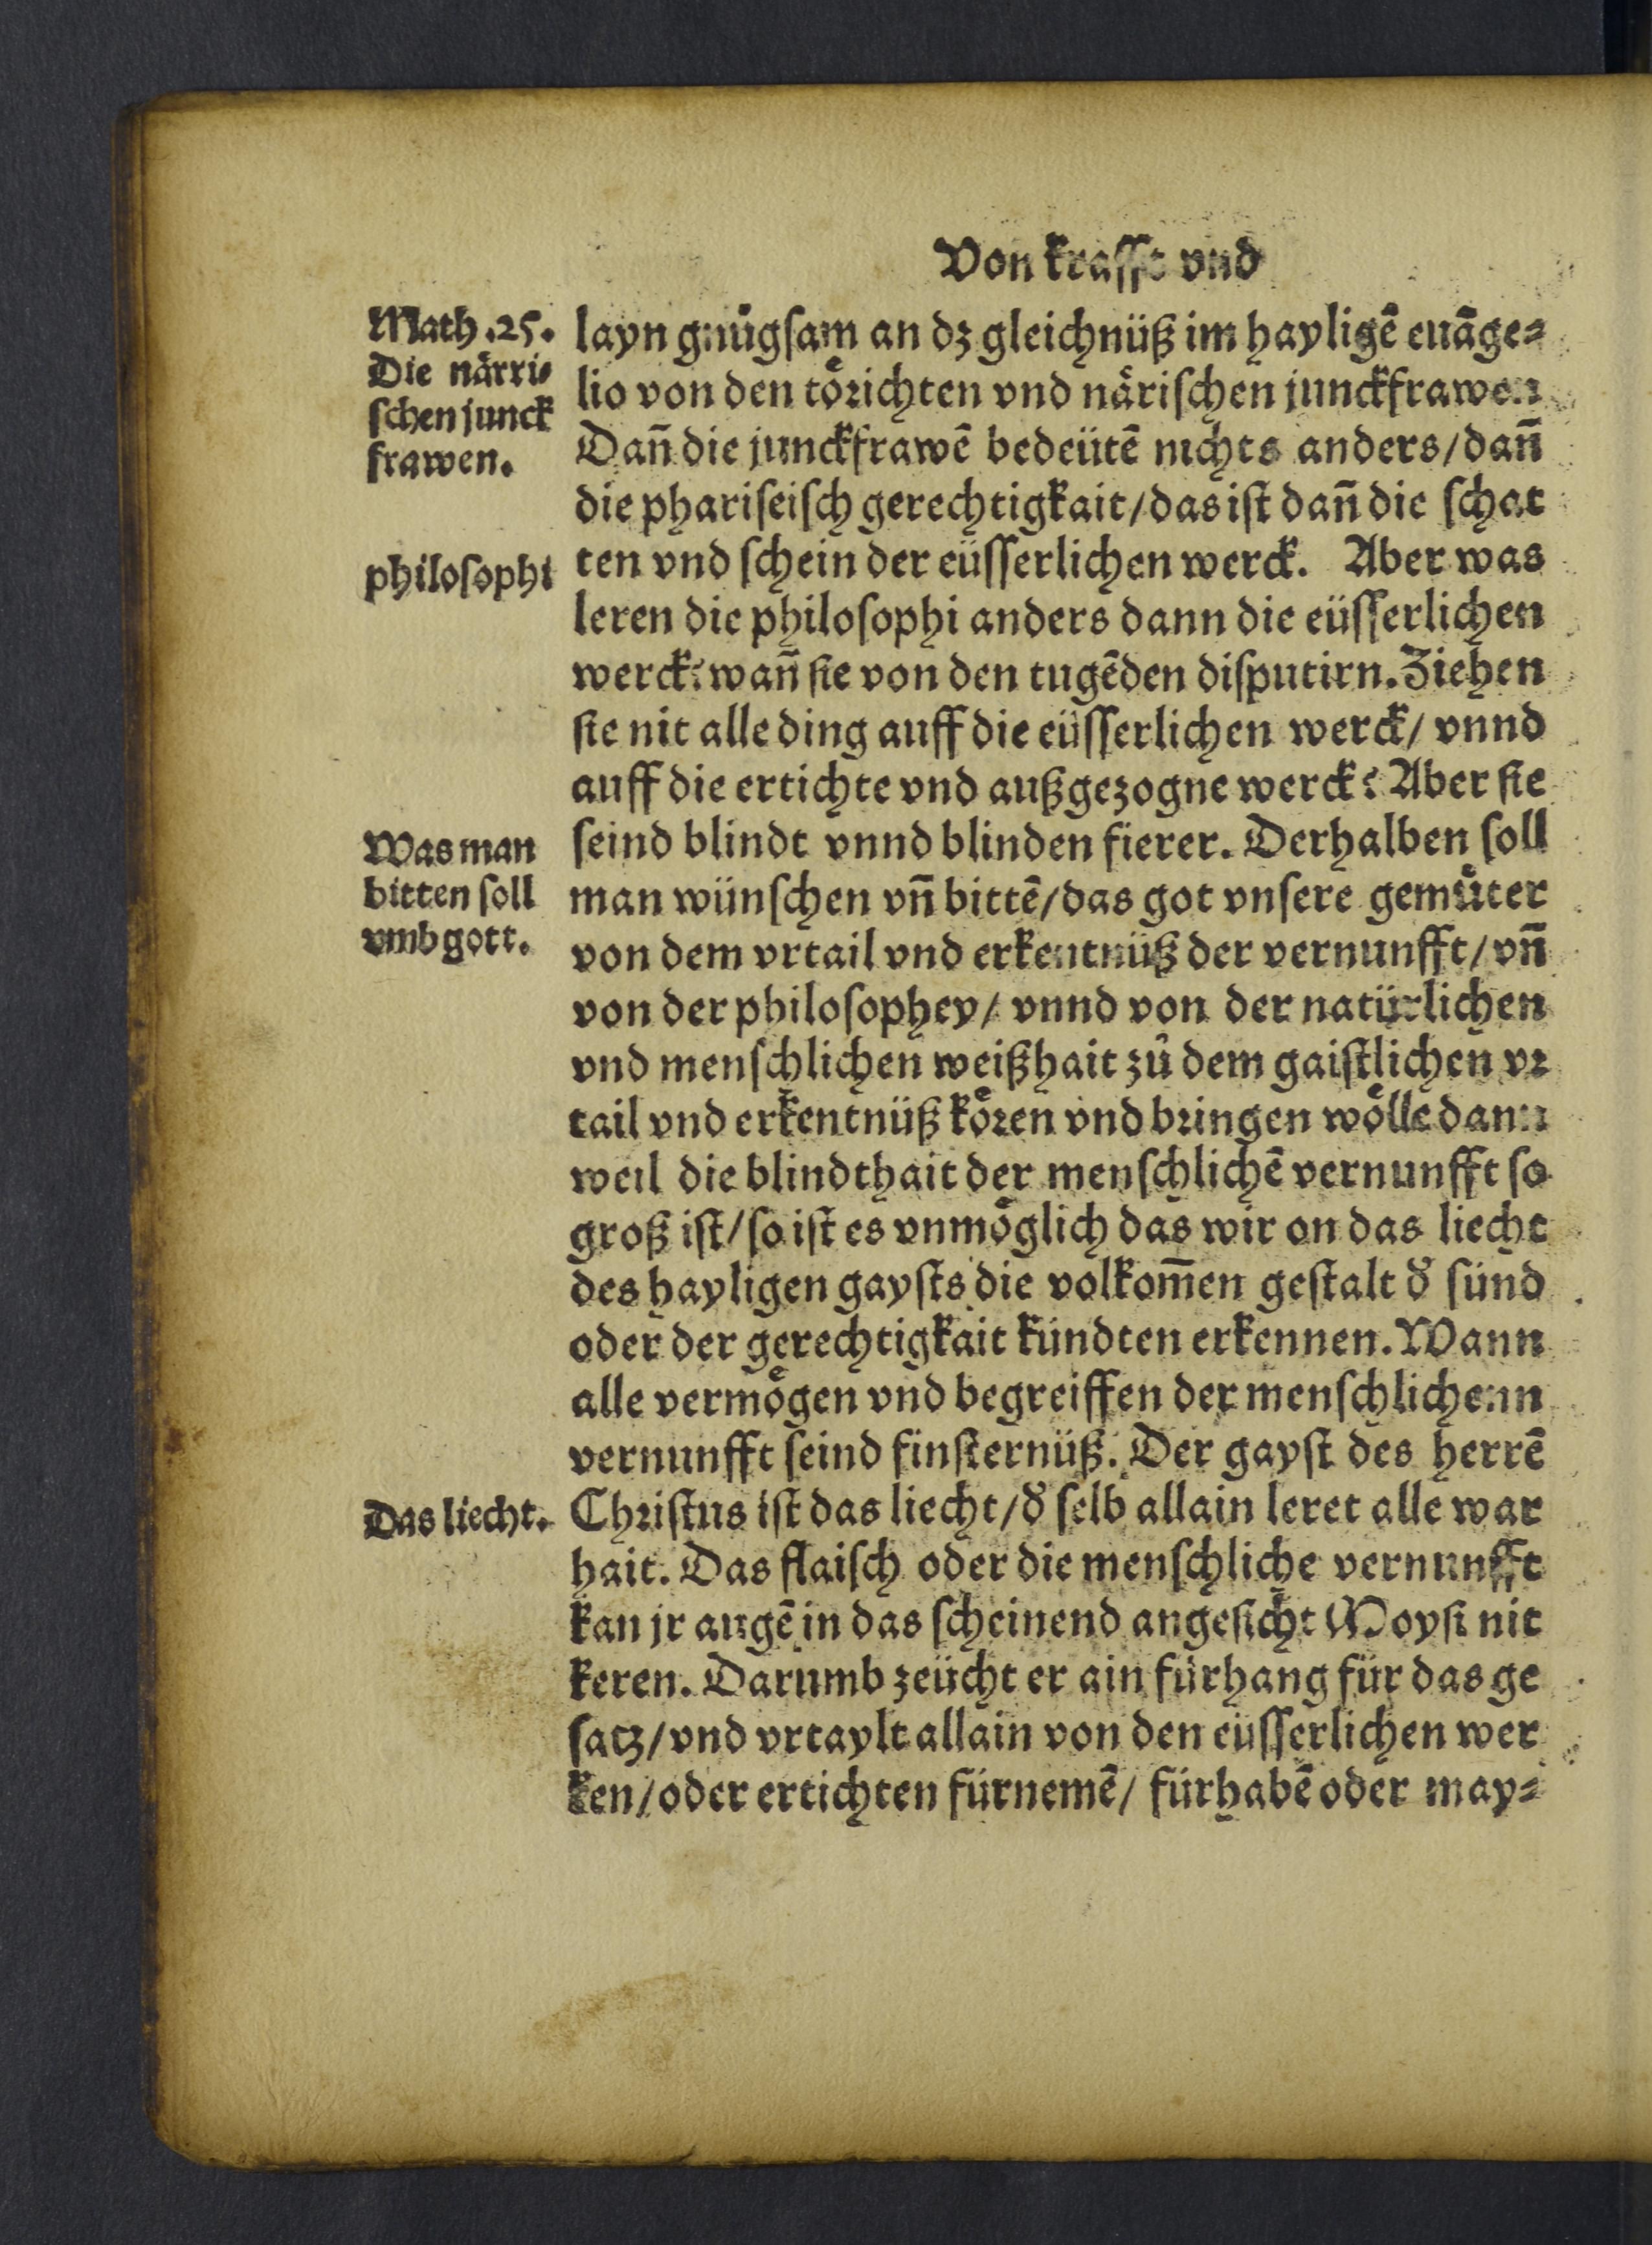 Von krafft vnd
Math .25.
Die närri⸗
ſchen junck
frawen.
philoſophi
Was man
bitten ſoll
vmb gott.
Das liecht.
layn gnůgſam an dz gleichnüß im hayligē euāge⸗
lio von den toͤrichten vnd naͤriſchen junckfrawen
Dañ die junckfrawē bedeütē nichts anders/dañ
die phariſeiſch gerechtigkait/das iſt dañ die ſchat
ten vnd ſchein der eüſſerlichen werck. Aber was
leren die philoſophi anders dann die eüſſerlichen
werck? wañ ſie von den tugēden diſputirn. Ziehen
ſie nit alle ding auff die eüſſerlichen werck/ vnnd
auff die ertichte vnd außgezogne werck? Aber ſie
ſeind blindt vnnd blinden fierer. Derhalben ſoll
man wünſchen vñ bittē/das got vnſere gemuͤter
von dem vrtail vnd erkentnüß der vernunfft/ vñ
von der philoſophey/ vnnd von der natürlichen
vnd menſchlichen weißhait zů dem gaiſtlichen vr
tail vnd erkentnüß koͤren vnd bringen woͤlle dann
weil die blindthait der menſchlichē vernunfft ſo
groß iſt/ſo iſt es vnmoͤglich das wir on das liecht
des hayligen gayſts die volkom̄en geſtalt ď ſünd
oder der gerechtigkait kündten erkennen. Wann
alle vermoͤgen vnd begreiffen der menſchlichenn
vernunfft ſeind finſternüß. Der gayſt des herrē
Chriſtus iſt das liecht/ď ſelb allain leret alle war
hait. Das flaiſch oder die menſchliche vernunfft
kan jr augē in das ſcheinend angeſicht Moyſi nit
keren. Darumb zeücht er ain fürhang für das ge
ſatz/vnd vrtaylt allain von den eüſſerlichen wer
ken/oder ertichten fürnemē/ fürhabē oder may⸗